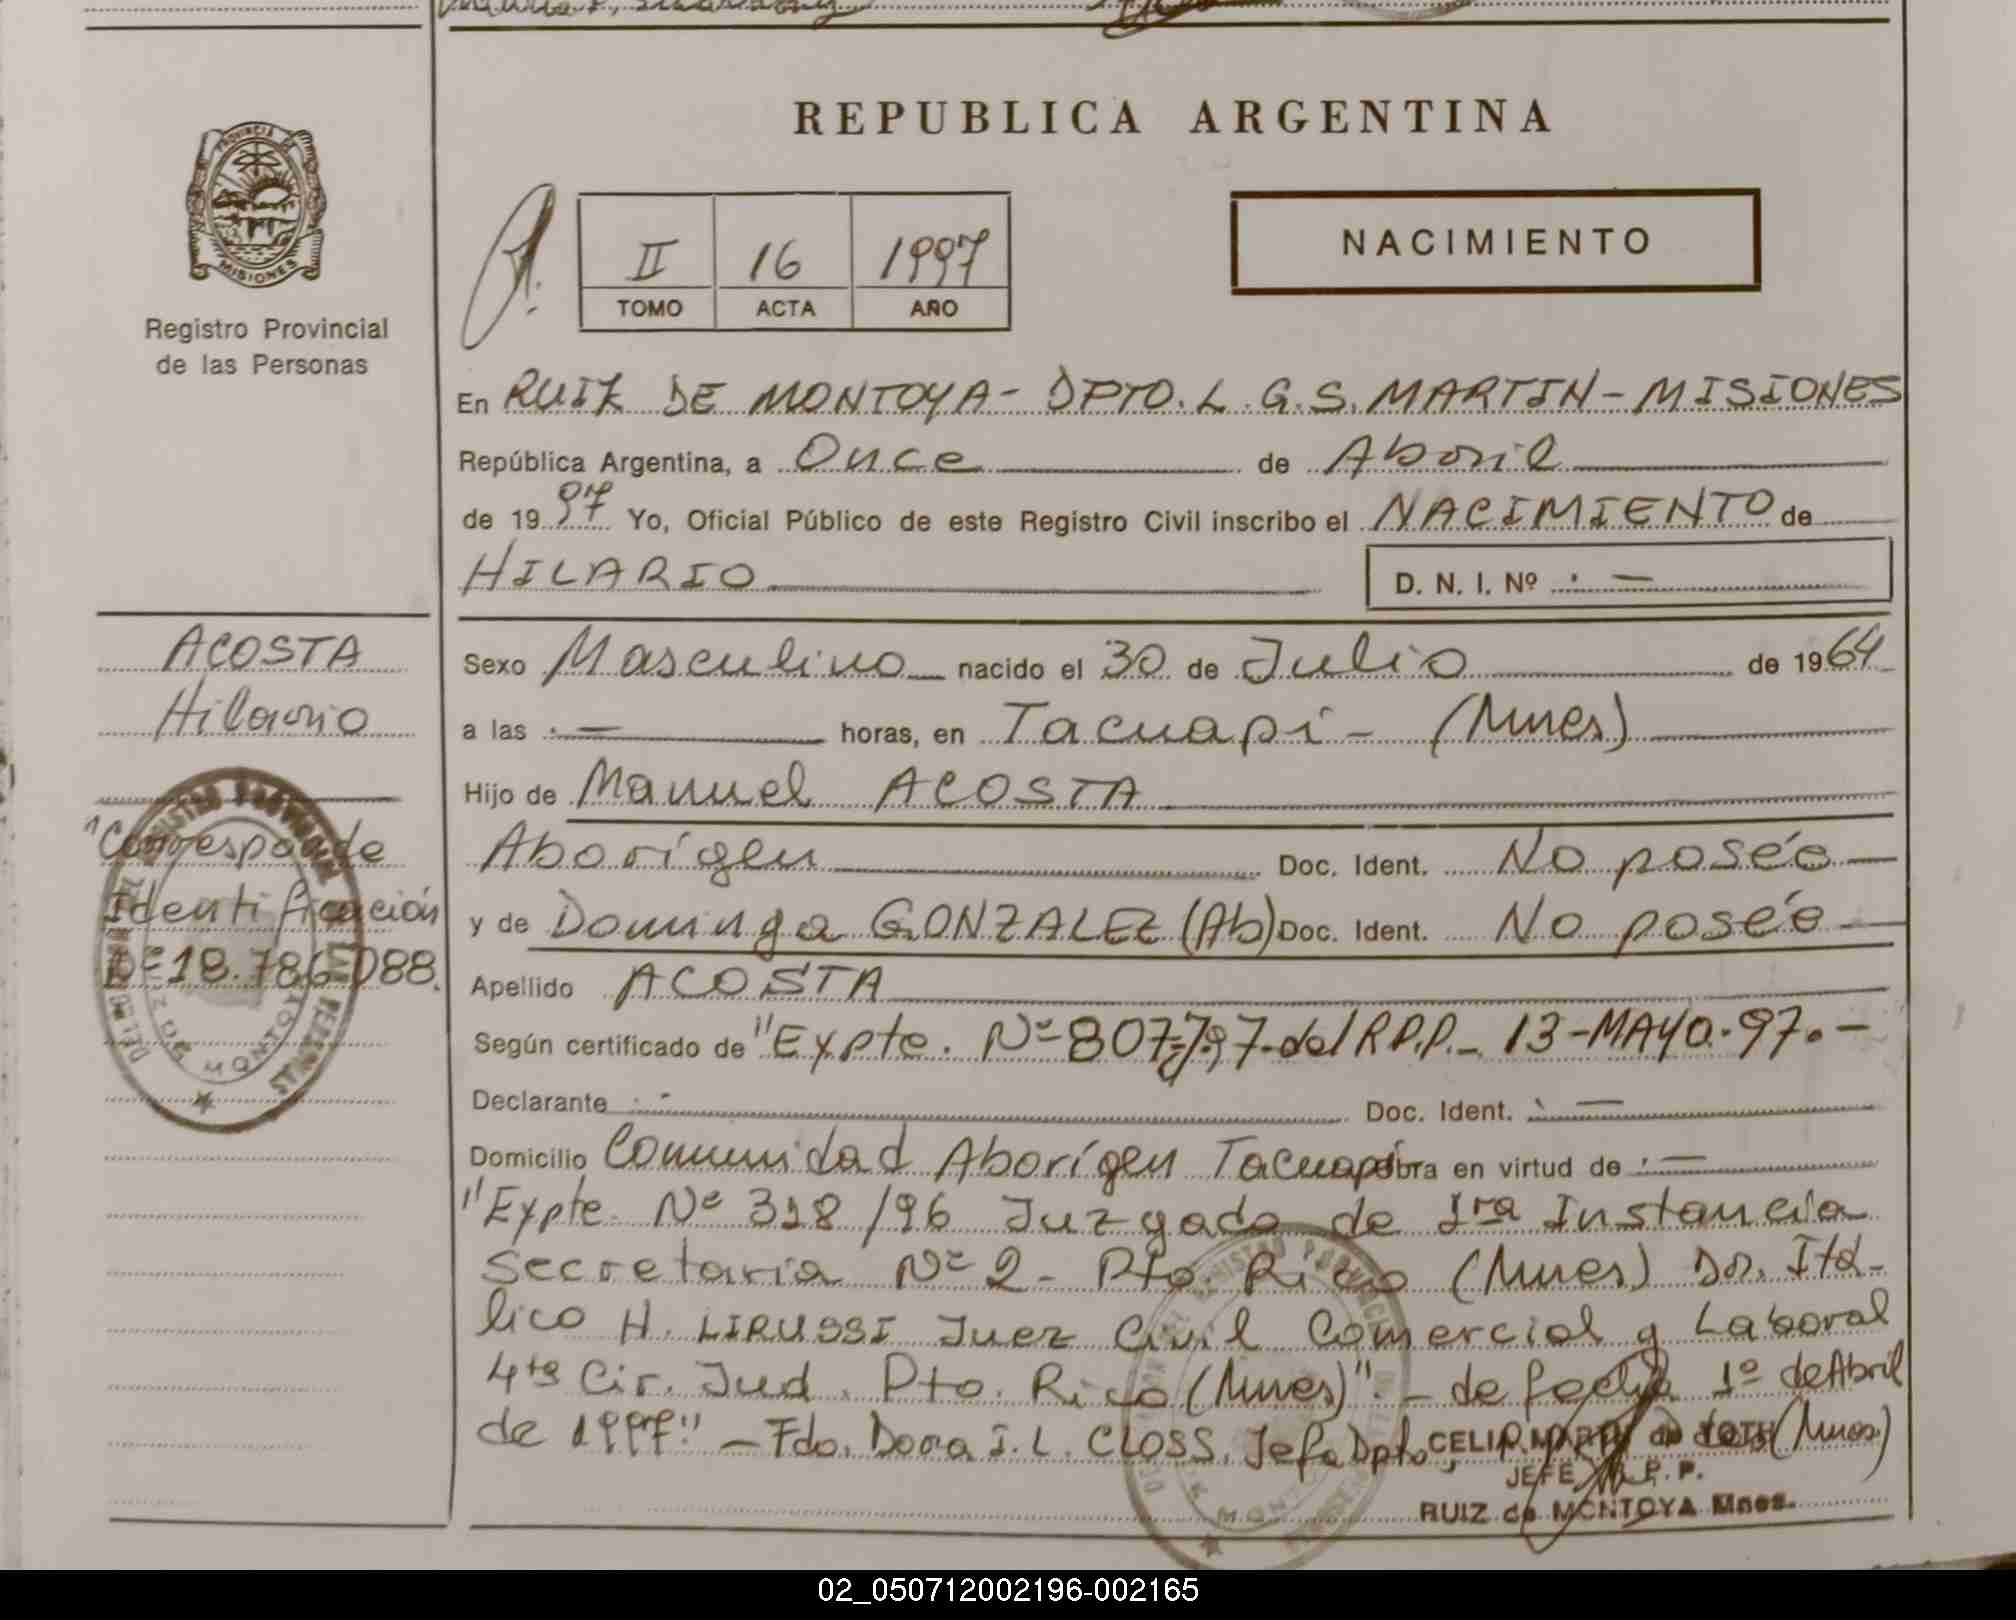 REPUBLICA ARGENTINA
PROVINCIA DE
MISIONES
Registro Provincial
de las Personas
II 16 1997
TOMO ACTA AÑO
NACIMIENTO
En RUIZ DE MONTOYA - DPTO. L. G. S. MARTIN - MISIONES
República Argentina, a Once de Abril
de 1997 Yo, Oficial Público de este Registro Civil inscribo el NACIMIENTO de
HILARIO D. N. I. Nº . —
ACOSTA
Hilario
"Corresponde
Identificación
Nº 18.786.088.
Sexo Masculino nacido el 30 de Julio de 1964
a las . — horas, en Tacuapi - (Mnes)
Hijo de Manuel ACOSTA
Aborígen Doc. Ident. No posée —
y de Dominga GONZALEZ (Ab) Doc. Ident. No posée —
Apellido ACOSTA
Según certificado de "Expte. Nº 807-797-del R.P.P. - 13-MAYO-97. —
Declarante . - Doc. Ident. . —
Domicilio Comunidad Aborígen Tacuapí obra en virtud de . —
"Expte. Nº 318/96 Juzgado de 1ra Instancia
Secretaría Nº 2 - Pto. Rico (Mnes) Dr. Itá-
lico H. LIRUSSI Juez Civil Comercial y Laboral
4ta Cir. Jud. Pto. Rico (Mnes)". - de fecha 1º de Abril
de 1997". - Fdo. Dora I. L. CLOSS. Jefa Dpto. (Mnes)
CELIA MARTA de TOTH
JEFE R. P. P.
RUIZ de MONTOYA Mnes.
02_050712002196-002165